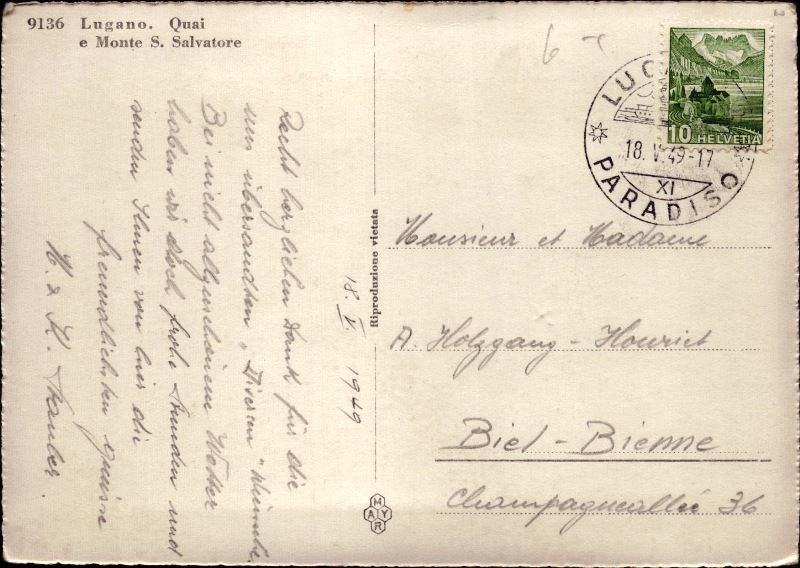 9136 Lugano. Quai
e Monte S. Salvatore
18. V. 1949
Recht herzlichen Dank für die
uns übersandten "Diversen" Wünsche.
Bei nicht allzuschönem Wetter
haben wir doch frohe Stunden und
senden Ihnen von hier die
freundlichsten Grüsse
H. & K.
Riproduzione vietata
MAYR
10 HELVETIA
LUG
18. V. 49-17
XI
PARADISO
Monsieur et Madame
A. Holzgang-Houriet
Biel-Bienne
Champagneallée 36